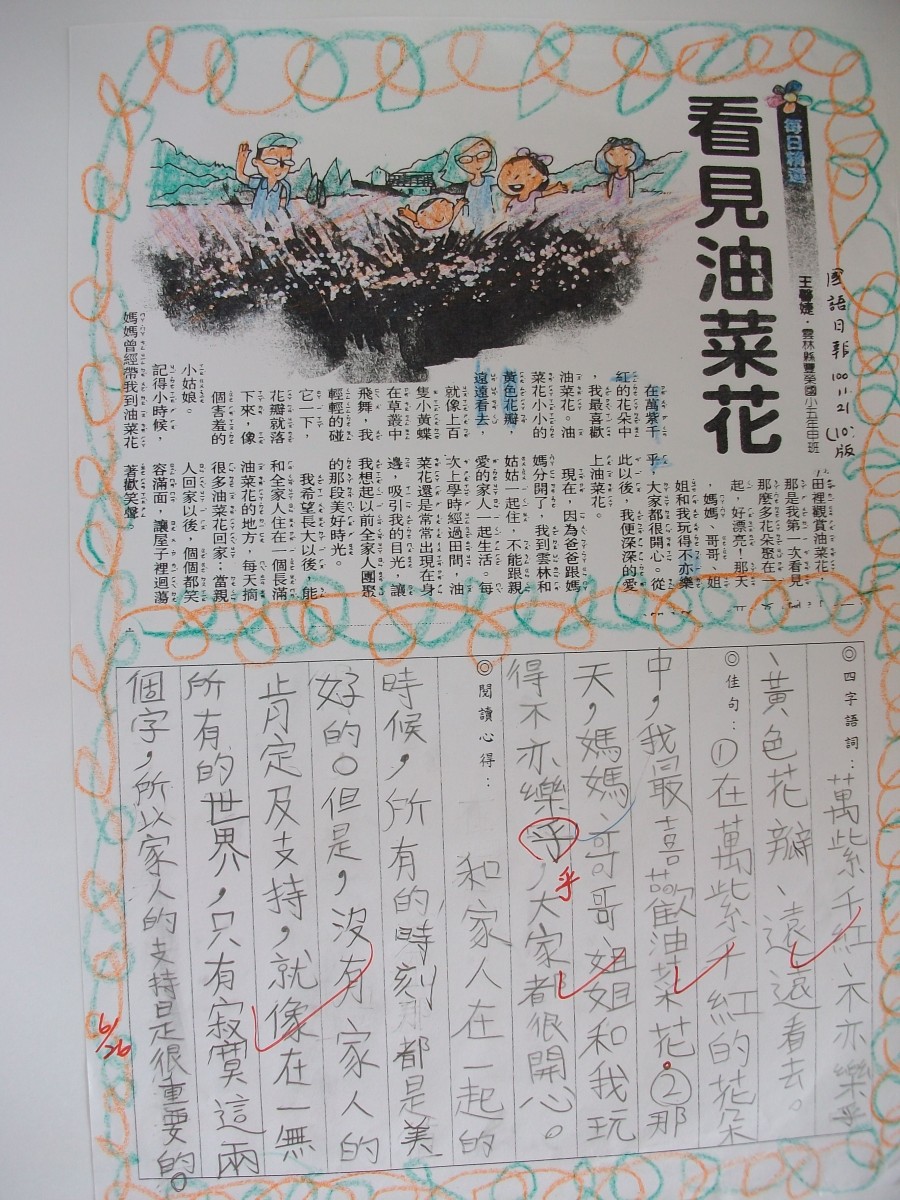 國語日報 100.11.21 (10)版
每日精選
王馨婕．雲林縣豐榮國小五年申班
看見油菜花
在萬紫千
紅的花朵中
，我最喜歡
油菜花。油
菜花小小的
黃色花瓣，
遠遠看去，
就像上百
隻小黃蝶
在草叢中
飛舞，我
輕輕的碰
它一下，
花瓣就落
下來，像
個害羞的
小姑娘。
記得小時候，
媽媽曾經帶我到油菜花
田裡觀賞油菜花，
那是我第一次看見
那麼多花朵聚在一
起，好漂亮！那天
，媽媽、哥哥、姐
姐和我玩得不亦樂
乎，大家都很開心。從
此以後，我便深深的愛
上油菜花。
現在，因為爸爸跟媽
媽分開了，我到雲林和
姑姑一起住，不能跟親
愛的家人一起生活。每
次上學時經過田間，油
菜花還是常常出現在身
邊，吸引我的目光，讓
我想起以前全家人團聚
的那段美好時光。
我希望長大以後，能
和全家人住在一個長滿
油菜花的地方，每天摘
很多油菜花回家；當親
人回家以後，個個都笑
容滿面，讓屋子裡迴蕩
著歡笑聲。
◎四字語詞：萬紫千紅、不亦樂乎
、黃色花瓣、遠遠看去。
◎佳句：①在萬紫千紅的花朵
中，我最喜歡油菜花。②那
天，媽媽、哥哥、姐姐和我玩
得不亦樂乎，大家都很開心。
乎
◎閱讀心得：
和家人在一起的
時候，所有的時刻都是美
好的。但是，沒有家人的
肯定及支持，就像在一無
所有的世界，只有寂寞這兩
個字，所以家人的支持是很重要的。
6/26